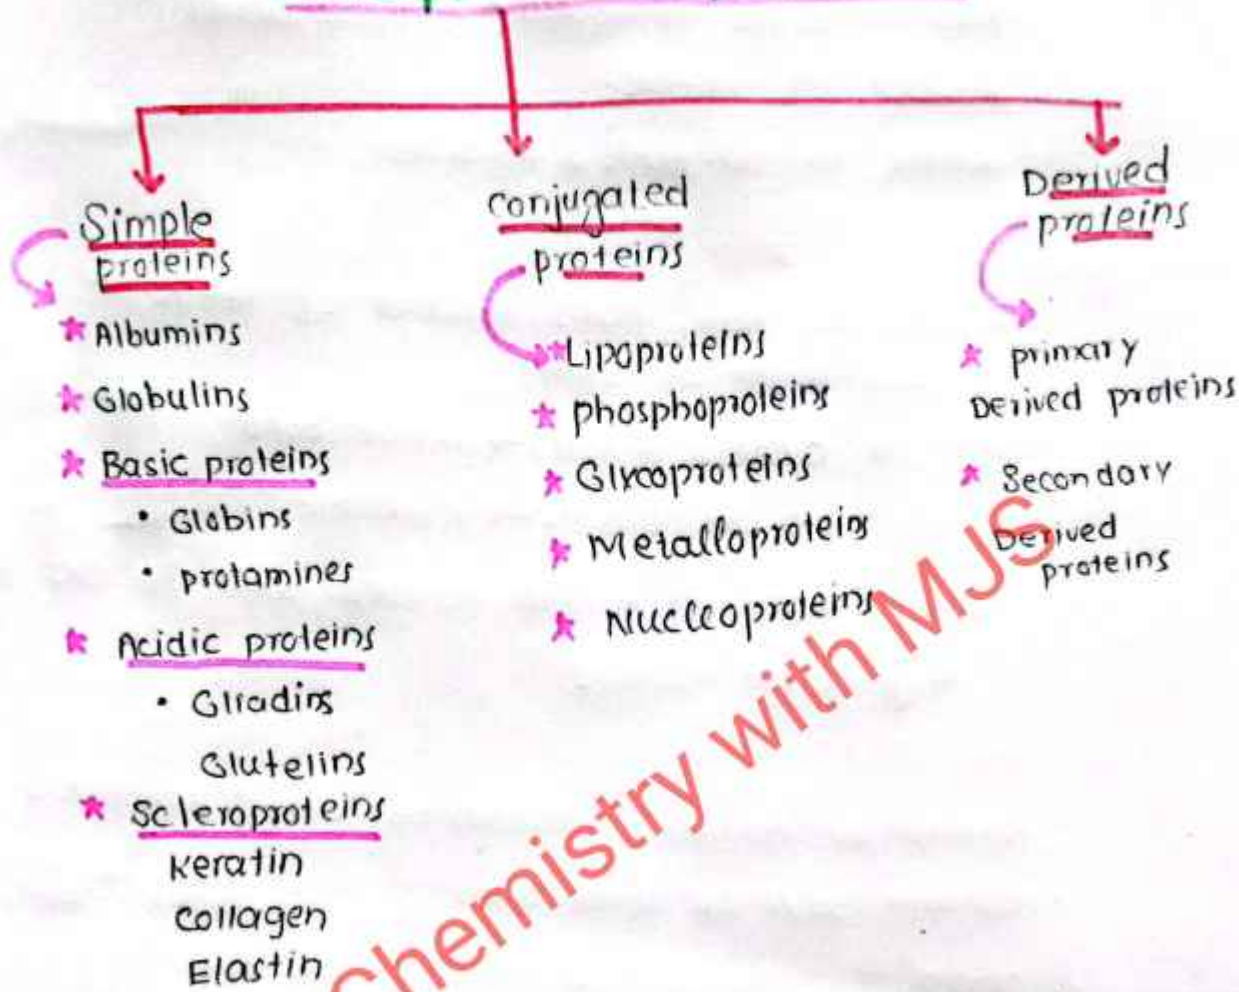 Simple
proteins
* Albumins
* Globulins
* Basic proteins
• Globins
• protamines
* Acidic proteins
• Gliadins
Glutelins
* Scleroproteins
Keratin
Collagen
Elastin
Conjugated
proteins
* Lipoproteins
* phosphoproteins
* Glycoproteins
* Metalloproteins
* Nucleoproteins
Derived
proteins
* primary
Derived proteins
* Secondary
Derived
proteins
Chemistry with MJS